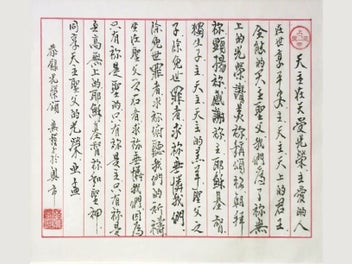 天主在天受光榮主愛的人
在世享平安主天主天上的君王
全能的天主聖父我們為了祢無
上的光榮讚美祢稱頌祢朝拜
祢顯揚祢感謝祢主耶穌基督
獨生子主天主天主的羔羊聖父之
子除免世罪者求祢垂憐我們
除免世罪者求祢俯聽我們的祈禱
坐在聖父之右者求祢垂憐我們因為
只有祢是聖的只有祢是主只有祢是
至高無上的耶穌基督祢和聖神
同享天主聖父的光榮亞孟
恭錄光榮頌